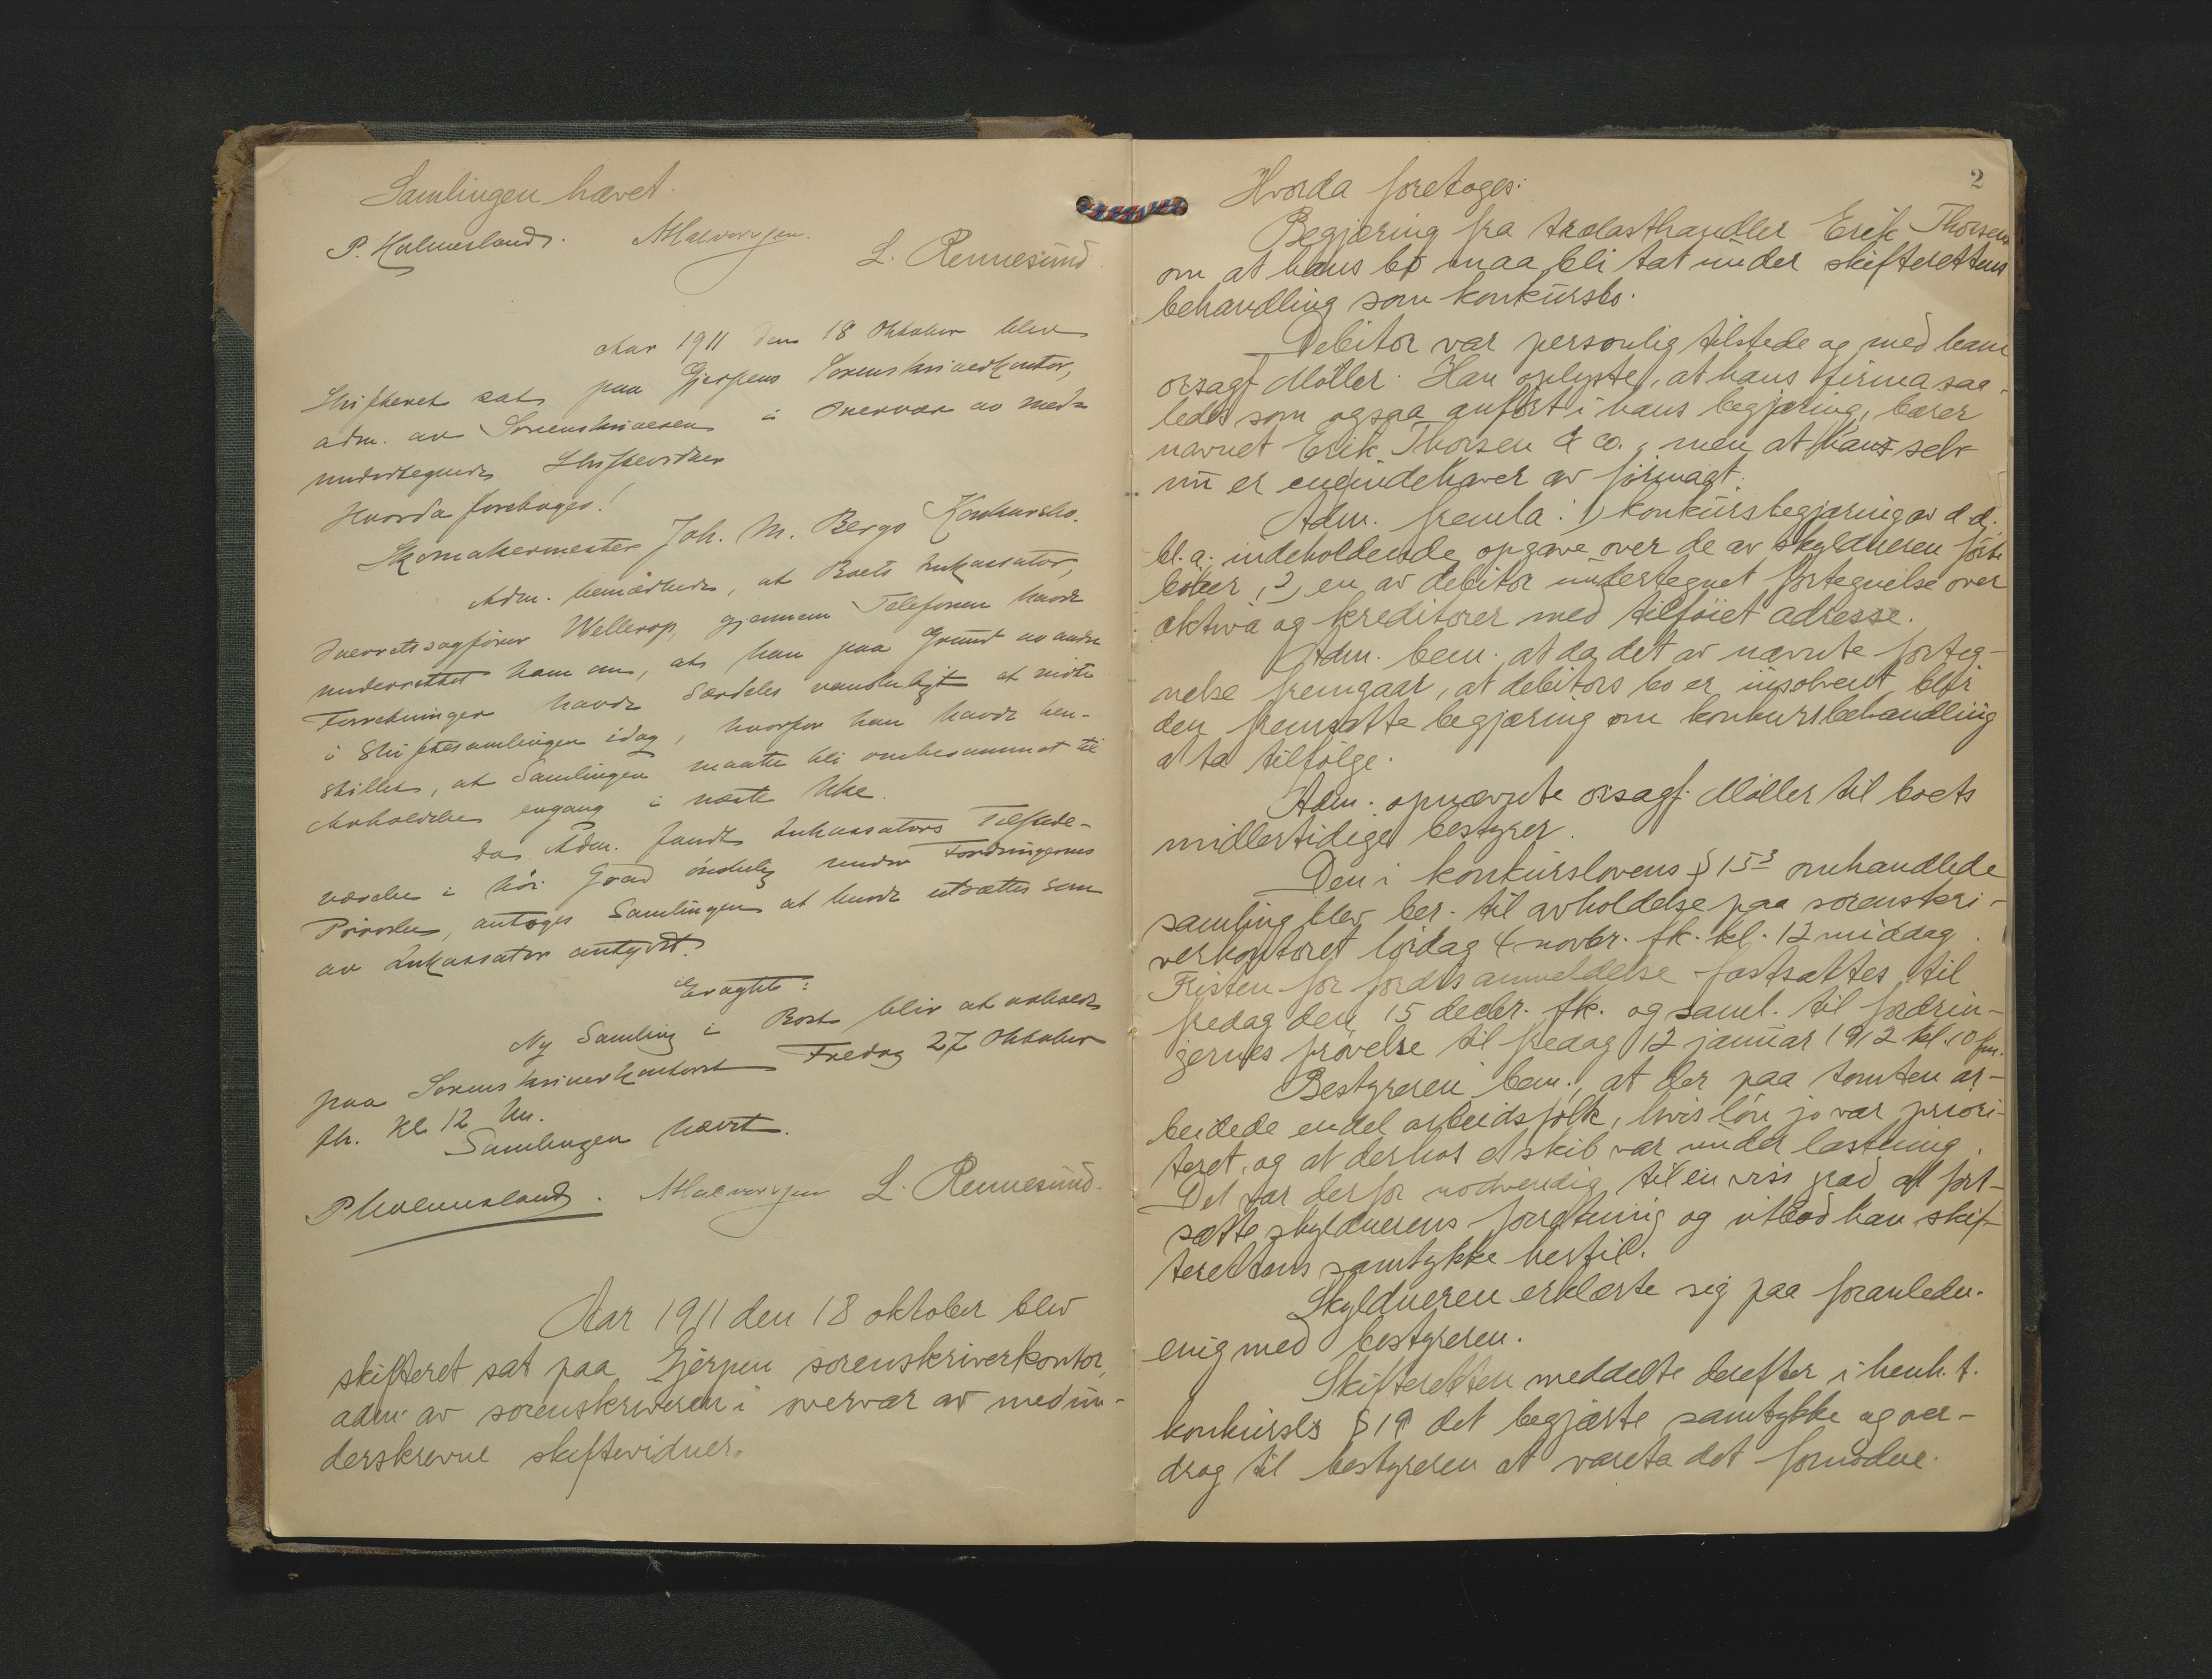 Samlingen hævet.
P. Holmesland. AHalvorsen.
L. Rennesund
Aar 1911 den 18 Oktober blev
Skifteret sat paa Gjerpens Sorenskriverkontor,
adm. av Sorenskriveren i Overvær av med-
undertegnede Skiftevidner
Hvorda foretoges:
Skomakermester Joh. M. Bergs Konkursbo.
Adm. bemærkede, at Boets Inkassator,
Overretssagfører Wellerop, gjennem Telefonen havde
underrettet ham om, at han paa Grund av andre
Forretninger havde særdeles vanskeligt at møte
i Skiftesamlingen idag, hvorfor han havde hen-
stillet, at Samlingen maatte bli ombesammet til
Avholdelse engang i næste Uke.
Da Adm. fandt Inkassators Tilstede-
værelse i høi Grad ønskelig under Fordringernes
Prøvelse, antoges Samlingen at burde utsættes som
av Inkassator antydet.
Eragtet:
Ny Samling i Boet blir at avholde
paa Sorenskriverkontoret Fredag 27 Oktober
fk. Kl 12 Mi.
Samlingen hævet.
PHolmesland. AHalvorsen L. Rennesund.
Aar 1911 den 18 oktober blev
skifteret sat paa Gjerpen sorenskriverkontor,
adm. av sorenskriveren i overvær av medun-
derskrevne skiftevidner.
2
Hvorda foretoges:
Begjæring fra trælasthandler Erik Thorsen
om at hans bo maa bli tat under skifterettens
behandling som konkursbo.
Debitor var personlig tilstede og med ham
orsagf. Møller. Han oplyste, at hans firma saa-
ledes som ogsaa anført i hans begjæring, bærer
navnet Erik Thorsen & Co., men at hans selv
nu er eneindehaver av firmaet.
Adm. fremla: 1) konkursbegjæring av d. d.
bl. a. indeholdende opgave over de av skyldneren førte
bøker, 2) en av debitor undertegnet fortegnelse over
aktiva og kreditorer med tilføiet adresse.
Adm. bem. at da det av nævnte forteg-
nelse fremgaar, at debitors bo er insolvent, blir
den fremsatte begjæring om konkursbehandling
at ta tilfølge.
Adm. opnævnte orsagf. Møller til boets
midlertidige bestyrer.
Den i konkurslovens § 15³ omhandlede
samling blev ber. til avholdelse paa sorenskri-
verkontoret lørdag 4 novbr. fk. kl. 12 middag.
Fristen for fordrs anmeldelse fastsattes til
fredag den 15 decbr. fk. og saml. til fordrin-
gernes prøvelse til fredag 12 januar 1912 kl. 10 fm.
Bestyreren bem., at der paa tomten ar-
beidede endel arbeidsfolk, hvis løn jo var priori-
teret, og at derhos et skib var under lastning.
Det var derfor nødvendig til en viss grad at fort-
sætte skyldnerens forretning og utbad han skif-
terettens samtykke hertil.
Skyldneren erklærte sig paa foranledn.
enig med bestyreren.
Skifteretten meddelte derefter i henh. t.
konkursls § 19 det begjærte samtykke og over-
drog til bestyreren at vareta det fornødne.